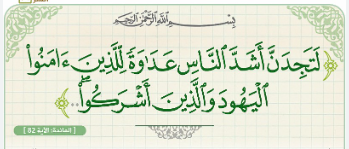 بِسْمِ اللَّهِ الرَّحْمَٰنِ الرَّحِيمِ
لَتَجِدَنَّ أَشَدَّ ٱلنَّاسِ عَدَٰوَةً لِّلَّذِينَ ءَامَنُوا۟
ٱلْيَهُودَ وَٱلَّذِينَ أَشْرَكُوا۟ۖ
[ المائدة: الآية 82 ]